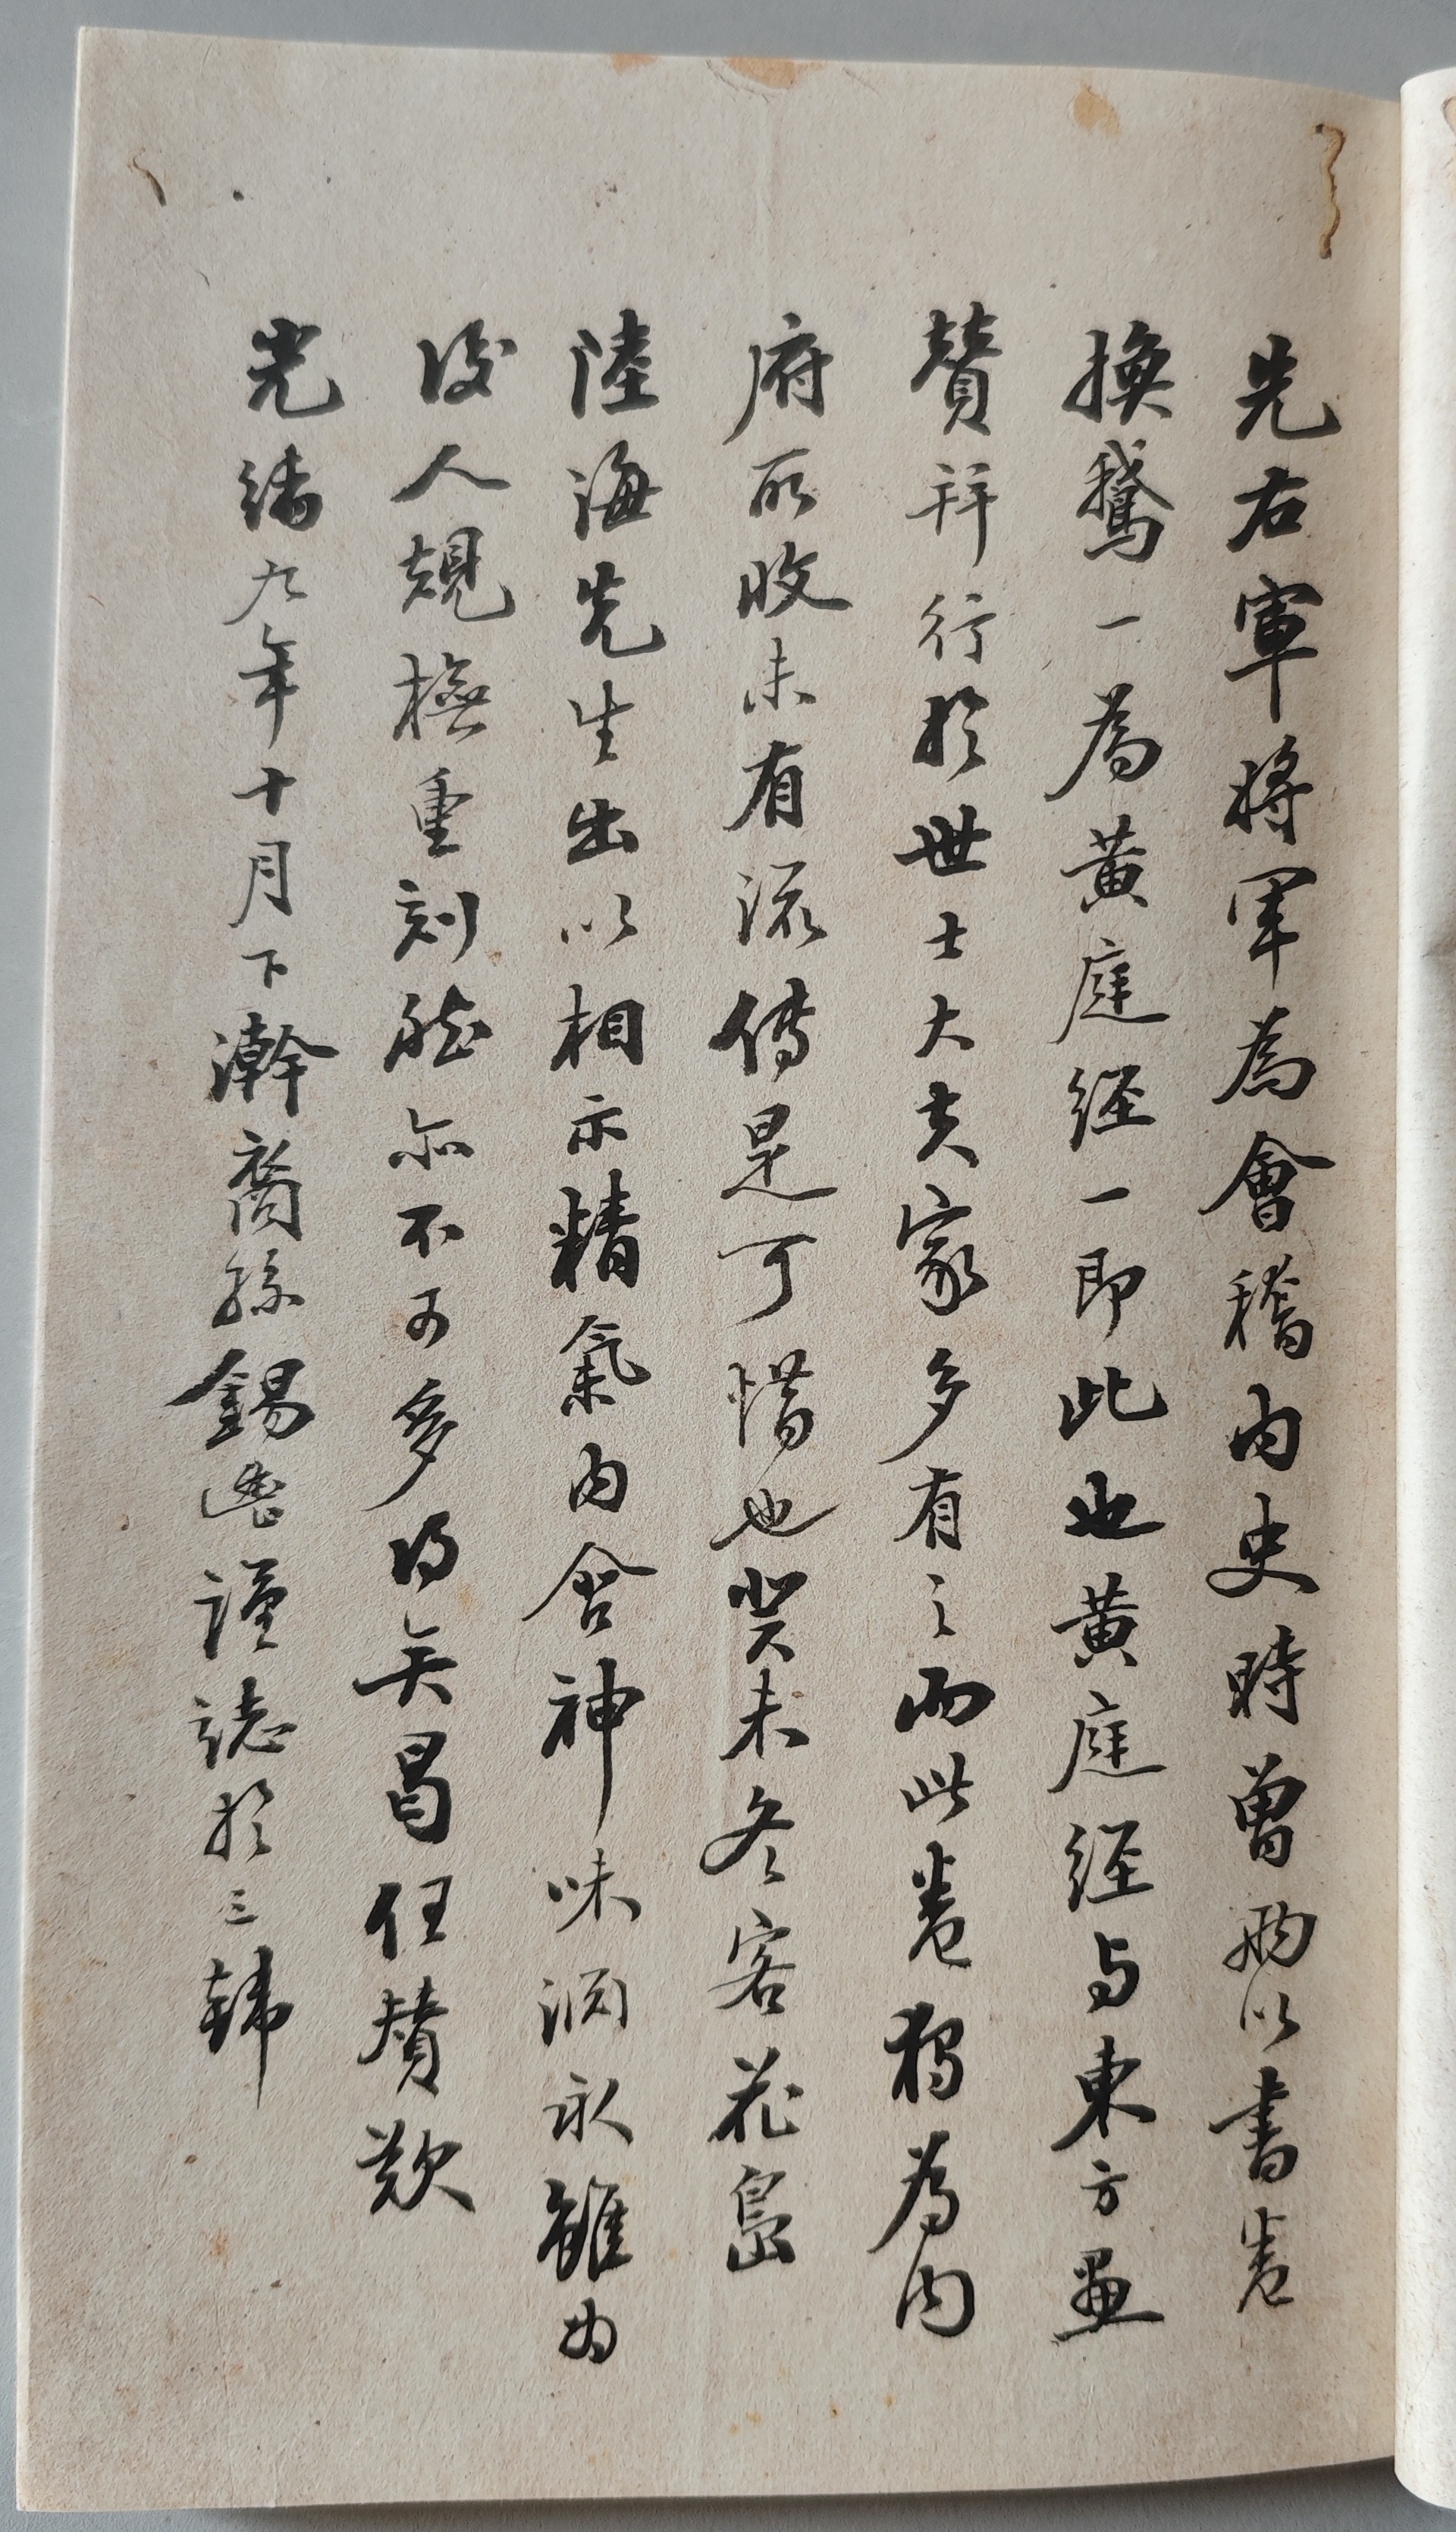 先右軍將軍為會稽內史時曾兩以書卷
換鵞一為黃庭經一即此也黃庭經与東方畫
贊並行於世士大夫家多有之而此卷獨為內
府所收未有流傳是可惜也癸未冬客花島
陸海先生出以相示精氣內含神味淵永雖為
後人規橅重刻然亦不可多得矣曷任贊歎
光緒九年十月下澣裔孫錫鬯謹誌於三韓